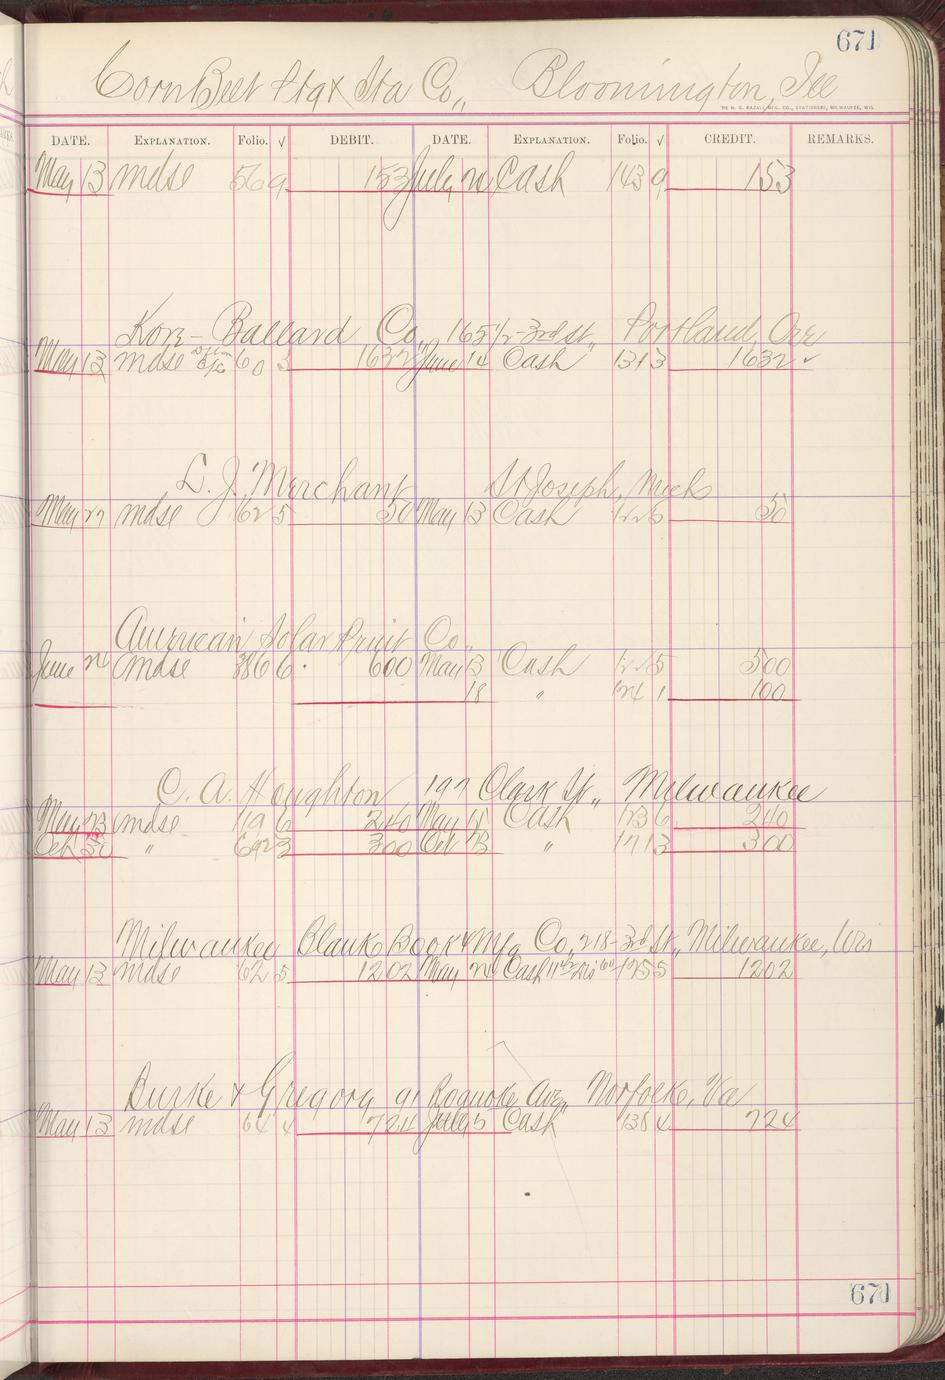 671
Corn Belt Ptg & Sta Co,, Bloomington, Ill
THE H. G. RAZALL MFG. CO., STATIONERS, MILWAUKEE, WIS.
DATE. EXPLANATION. Folio. √ DEBIT. DATE. EXPLANATION. Folio. √ CREDIT. REMARKS.
May 13 mdse 56 9 153 July Cash 143 9 153
Ballard Co,, 165 1/2 - 3rd St,, Portland, Ore
May 13 mdse 60 3 1632 June 14 Cash 131 3 1632 ✓
L. J. Merchant St Joseph, Mich
May 27 mdse 62 5 50 May 13 Cash 50
American Solar Fruit Co,,
June mdse 386 6 600 May 13 Cash 500
18 " 124 1 100
C. A. Houghton 197 Clark St,, Milwaukee
May 13 mdse 119 6 240 May Cash 123 6 240
Oct 20 " 692 3 300 Oct 23 " 171 3 300
Milwaukee Blank Book & Mfg Co, 218 - 3rd St,, Milwaukee, Wis
May 13 mdse 62 5 1202 May Cash 125 5 1202
Burke & Gregory 91 Roanoke Ave,, Norfolk, Va
May 13 mdse 64 4 724 July 5 Cash 138 4 724
671